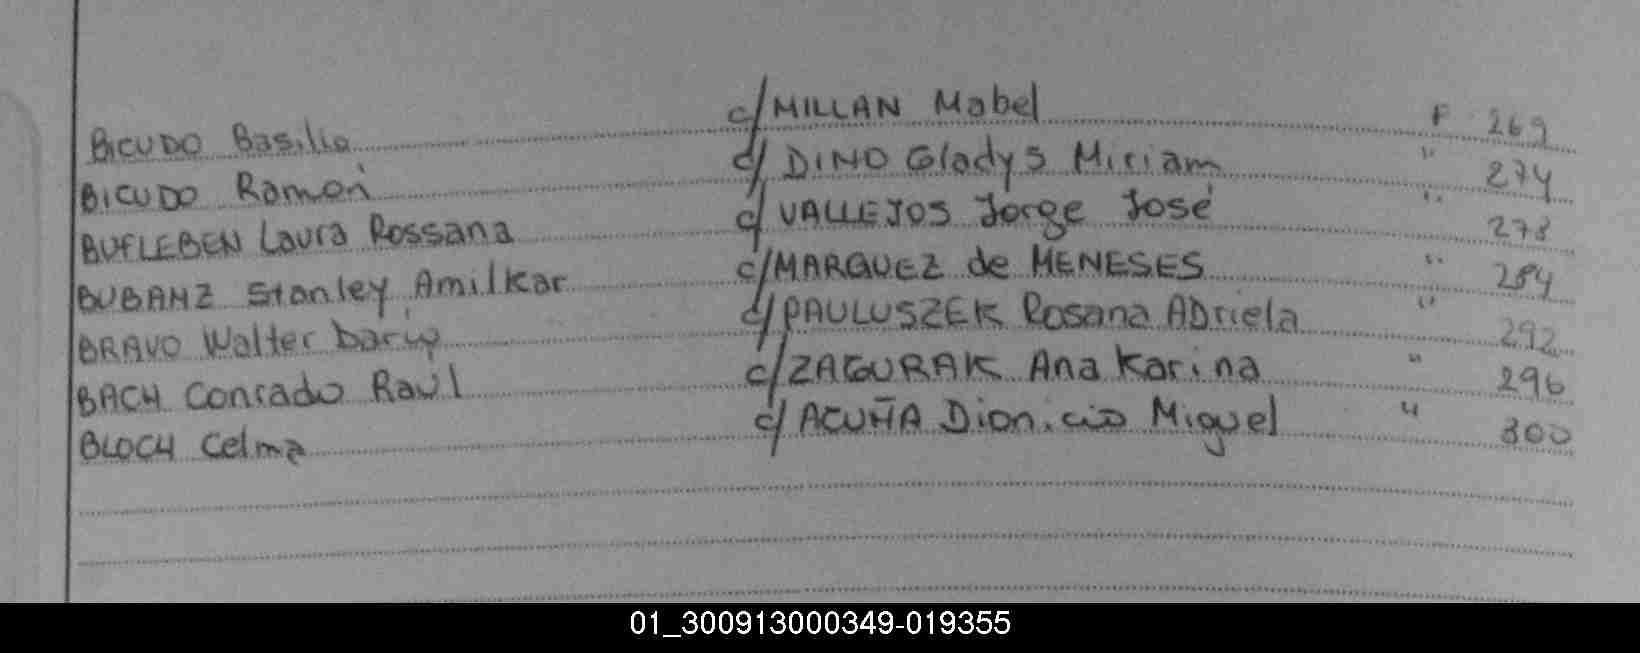 BICUDO Basilio c/ MILLAN Mabel F 269
BICUDO Ramon c/ DINO Gladys Miriam " 274
BUFLEBEN Laura Rossana c/ VALLEJOS Jorge José " 278
BUBANZ Stanley Amilkar c/ MARQUEZ de MENESES " 284
BRAVO Walter Dario c/ PAULUSZEK Rosana ADriela " 292
BACH Conrado Raúl c/ ZAGURAK Ana Karina " 296
BLOCH Celma c/ ACUÑA Dionicio Miguel " 300
01_300913000349-019355